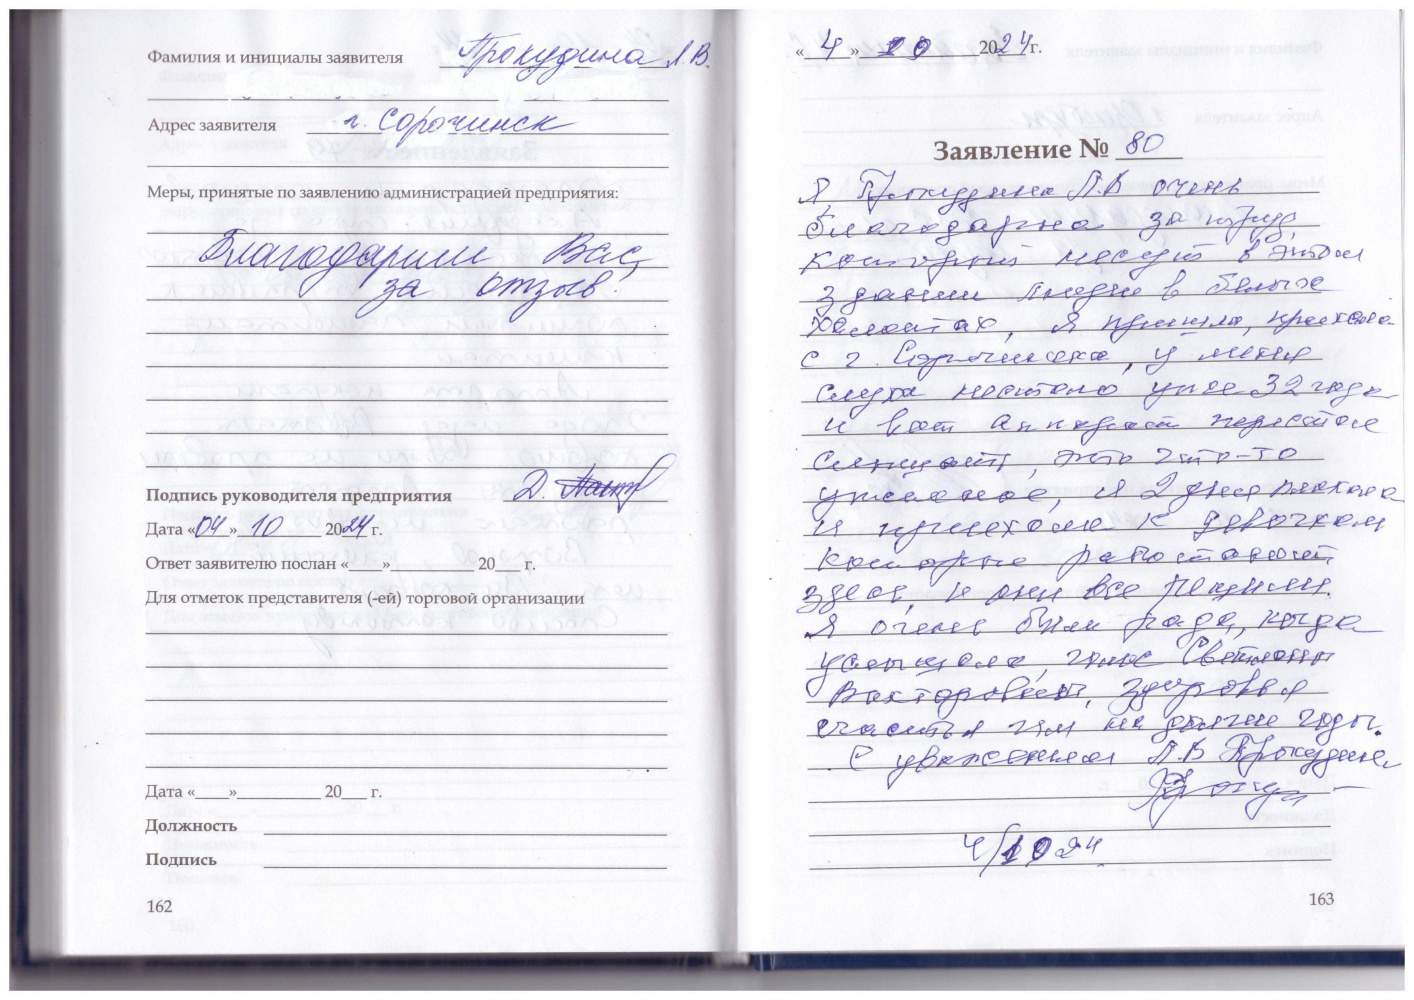 Фамилия и инициалы заявителя Прокудина Л.В.
Адрес заявителя г. Сорочинск
Меры, принятые по заявлению администрацией предприятия:
Благодарим Вас,
за отзыв
Подпись руководителя предприятия
Дата «04» 10 2024 г.
Ответ заявителю послан «___» ___ 20___ г.
Для отметок представителя (-ей) торговой организации
Дата «___» ___ 20___ г.
Должность
Подпись
162
«4» 10 2024 г.
Заявление № 80
Я, Прокудина Л.В очень
благодарна за труд,
который несут в этом
здании люди в белых
халатах, я пришла, приехала
с г. Сорочинска, у меня
слуха не стало уже 32 года
и вот аппарат перестал
слышать, это что-то
ужасное, я 2 дня плакала
и приехала к девочкам
которые работают
здесь, и они все решили.
Я очень была рада, когда
услышала, голос Светланы
Викторовны, здоровья
счастья им на долгие годы.
С уважением Л.В Прокудина
4/10 24
163